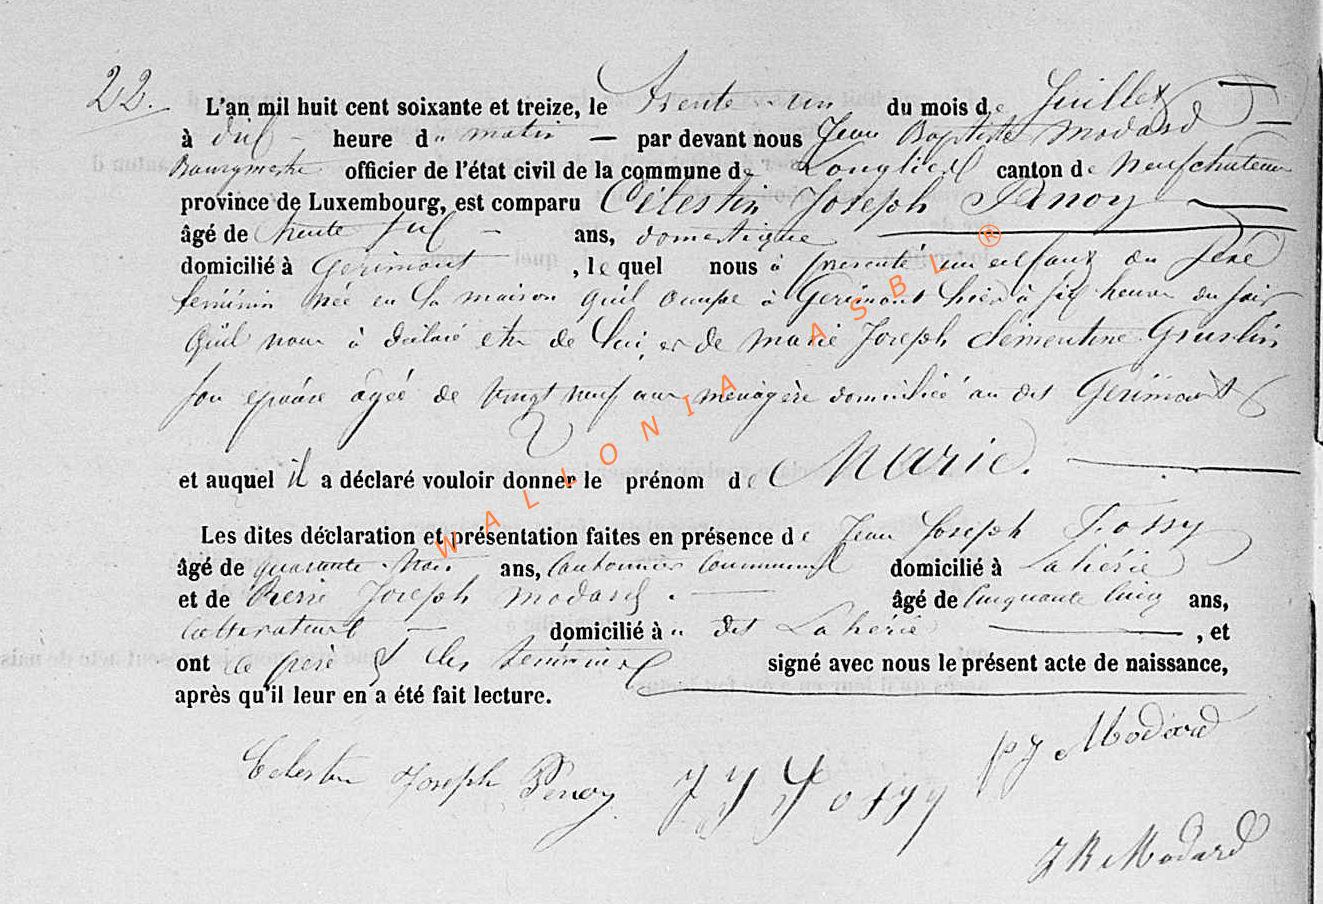 22. L'an mil huit cent soixante et treize, le Trente-un du mois de Juillet
à dix heure du matin par devant nous Jean Baptiste Modard
Bourgmestre officier de l'état civil de la commune de Longlier canton de Neufchateau
province de Luxembourg, est comparu Célestin Joseph Penoy
âgé de trente six ans, domestique
domicilié à Gerimont, lequel nous a presenté un enfant du sexe
feminin née en la maison qu'il occupe à Gerimont hier à six heure du soir
qu'il nous à déclaré etre de lui, et de Marie Joseph Clémentine
son epouse agée de vingt neuf ans menagère domiciliée au dit Gerimont
et auquel il a déclaré vouloir donner le prénom de Marie.
Les dites déclaration et présentation faites en présence de Jean Joseph Fossy
âgé de quarante trois ans, Cantonnier Communal domicilié à Lahérie
et de Pierre Joseph Modard. âgé de Cinquante Cinq ans,
Cultivateur domicilié à u dit Lahérie, et
ont le père et les temoins signé avec nous le présent acte de naissance,
après qu'il leur en a été fait lecture.
Celestin Joseph Penoy J J Fossy p J Modard
J B Modard
WALLONIA ASBL ®